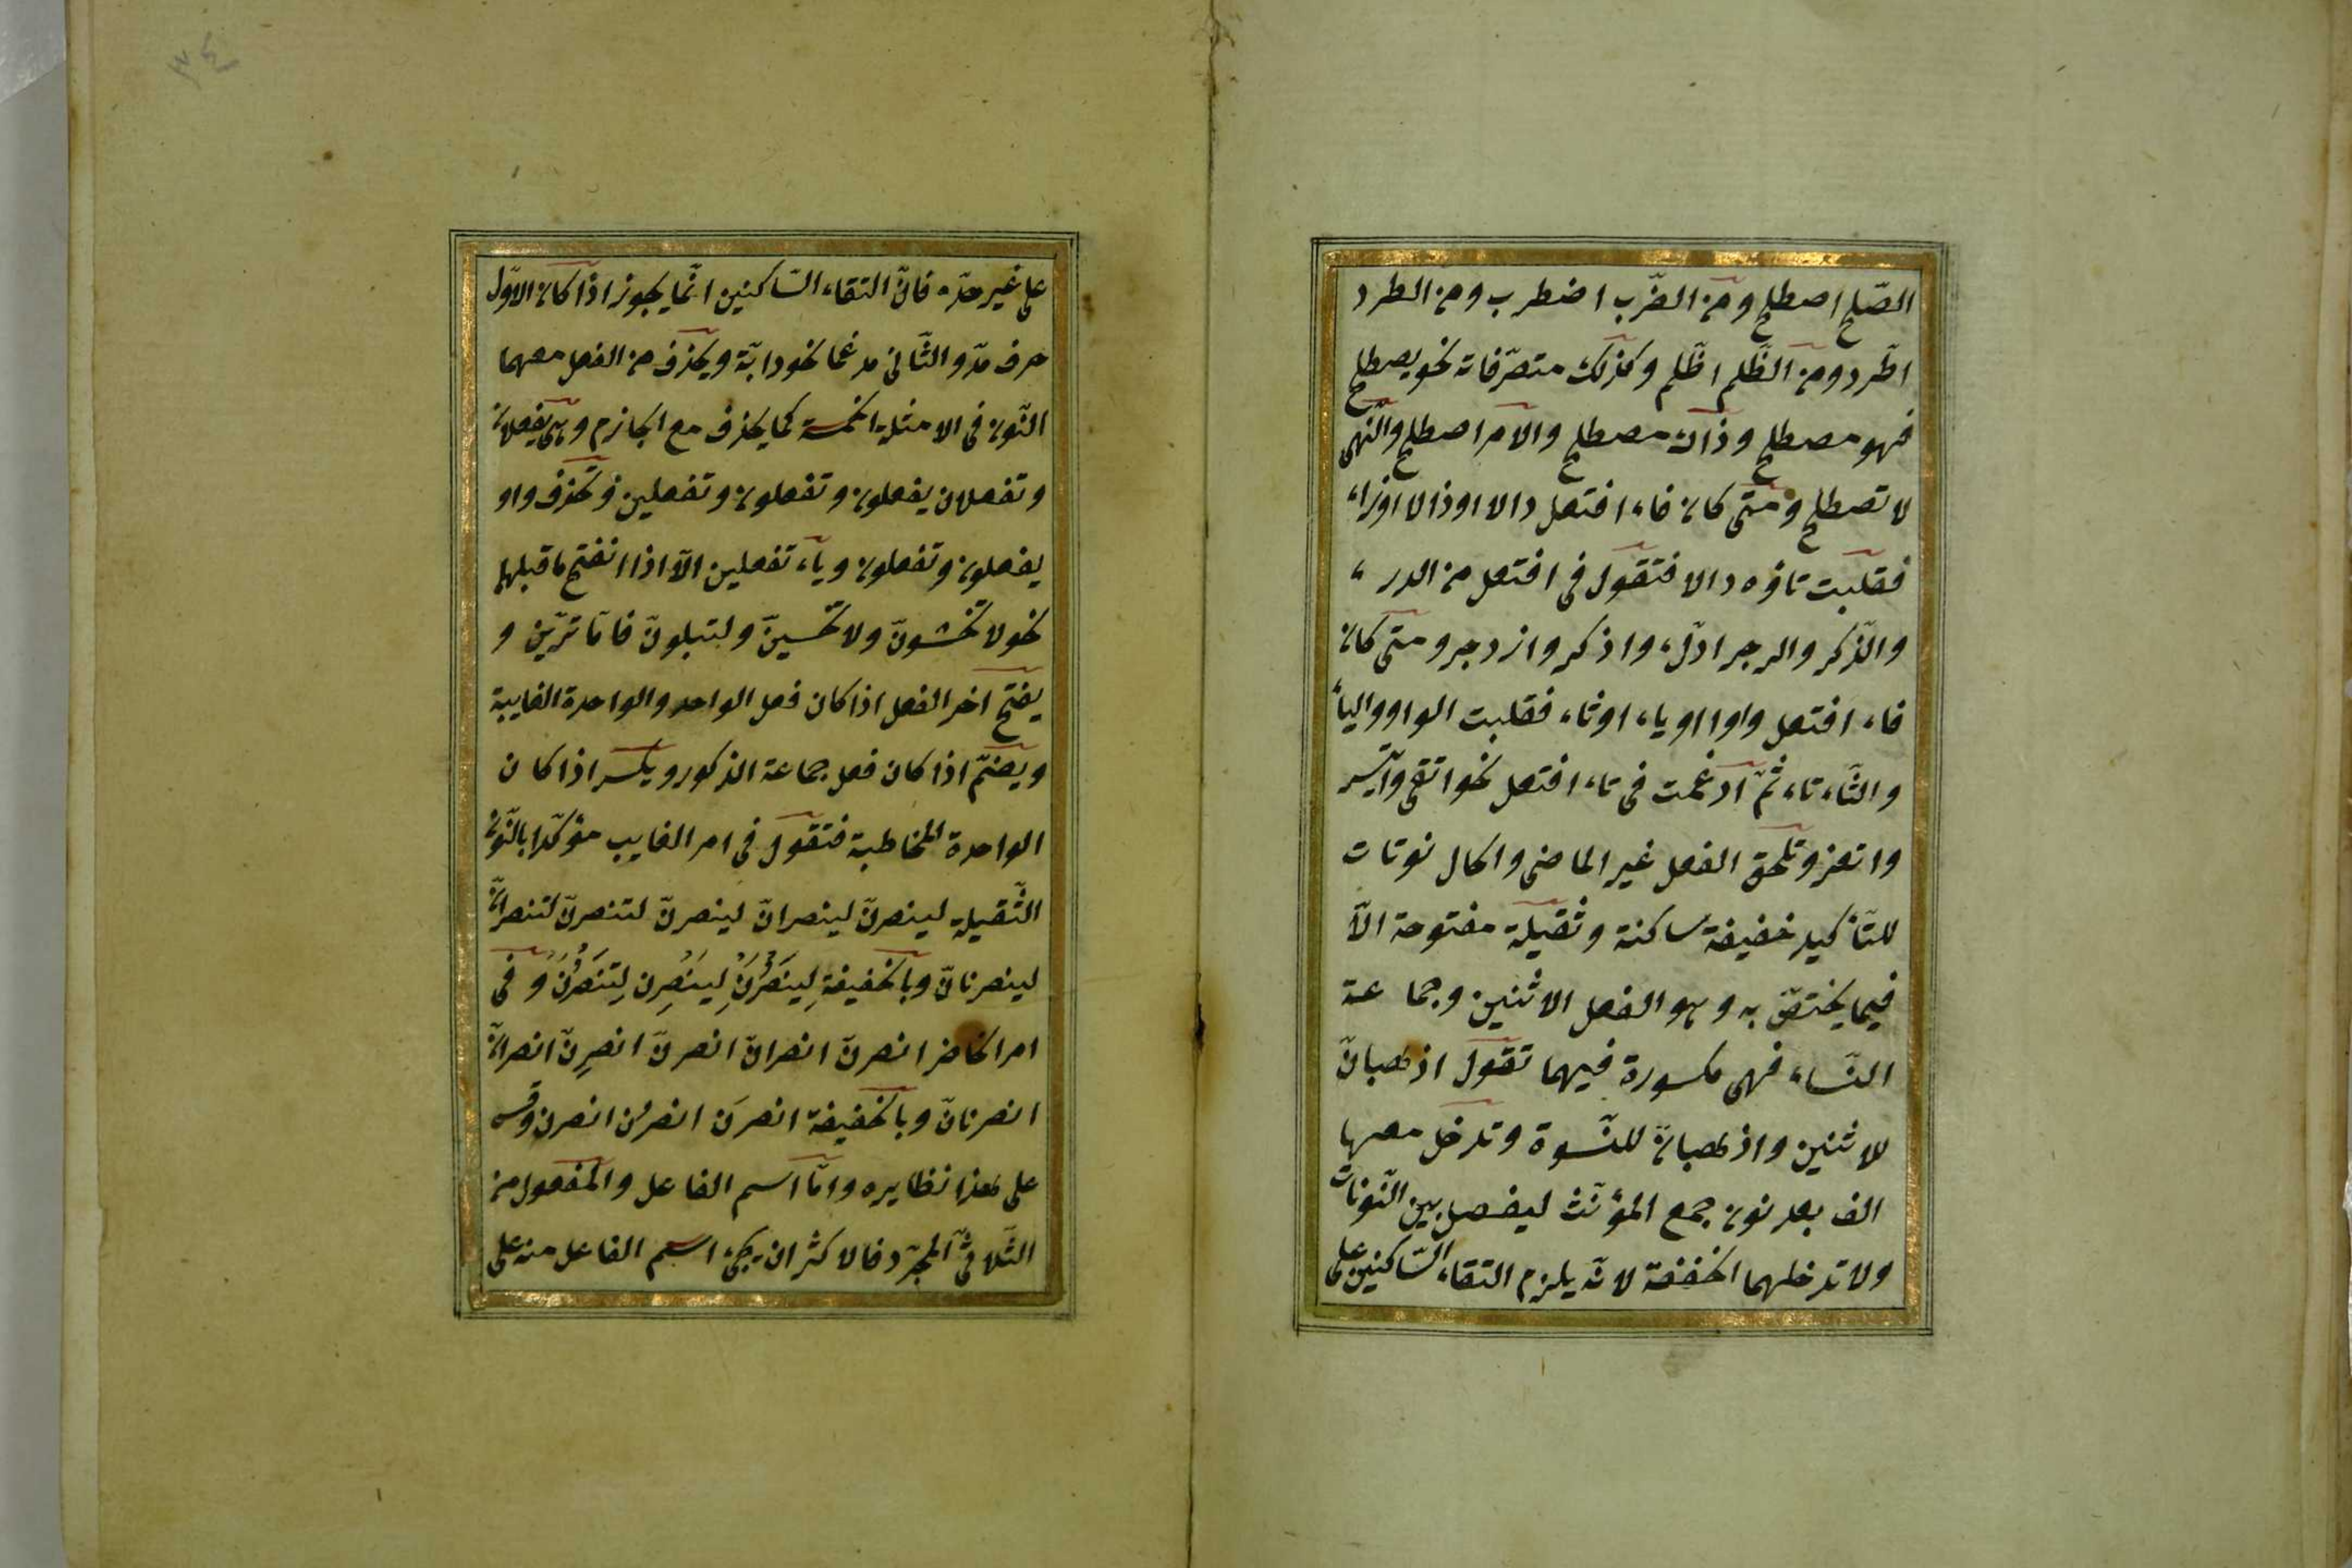 الصّلح اصطلح ومن الضّرب اضطرب ومن الطرد
اطّرد ومن الظّلم اظّلم وكذلك متصرّفاته نحو يصطلح
فهو مصطلح وذاك مصطلح والامر اصطلح والنّهى
لا تصطلح ومتى كان فاء افتعل دالا اوذالا اوزاء
فقلبت تاؤه دالا فتقول فى افتعل من الدرء
والذّكر والزجر ادّرء واذكر وازدجر ومتى كان
فاء افتعل واوا اوياء اوثاء فقلبت الواو والياء
والثّاء تاء ثمّ ادغمت فى تاء افتعل نحو اتقى واتّسر
واتغر وتلحق الفعل غير الماضى والحال نونات
للتّأكيد خفيفة ساكنة وثقيلة مفتوحة الّا
فيما يختصّ به وهو الفعل الاثنين وجماعة
النّساء فهى مكسورة فيهما تقول اذهبانّ
للاثنين واذهبانّ للنّسوة وتدخل معها
الف بعد نون جمع المؤنّث ليفصل بين النّونات
ولا تدخلهما الخفيفة لانّه يلزم التقاء السّاكنين على
على غير حدّه فانّ التقاء السّاكنين انّما يجوز اذا كان الاوّل
حرف مدّ والثّانى مدغما نحو دابّة ويحذف من الفعل معهما
النّون فى الامثلة الخمسة كما يحذف مع الجازم وهى يفعلان
وتفعلان يفعلون وتفعلون وتفعلين وتحذف واو
يفعلون وتفعلون وياء تفعلين الّا اذا انفتح ماقبلهما
نحو لا تخشونّ ولا تخشينّ ولتبلونّ فامّا ترينّ و
يفتح اخر الفعل اذا كان فعل الواحد والواحدة الغايبة
ويضمّ اذا كان فعل جماعة الذكور ويكسر اذا كان
الواحدة المخاطبة فتقول فى امر الغايب مؤكّدا بالنّون
الثّقيلة لينصرنّ لينصرانّ لينصرنّ لتنصرنّ لتنصرانّ
لينصرنانّ وبالخفيفة لِيَنصُرَنْ لِيَنصُرُن لِتَنصُرَنْ وفى
امر الحاضر انصرنّ انصرانّ انصرنّ انصرِنّ انصرانّ
انصرنانّ وبالخفيفة انصرَن انصرُن انصرن وقس
على هذا نظايره وامّا اسم الفاعل والمفعول من
الثّلاثىّ المجرّد فالاكثر ان يجىء اسم الفاعل منه على